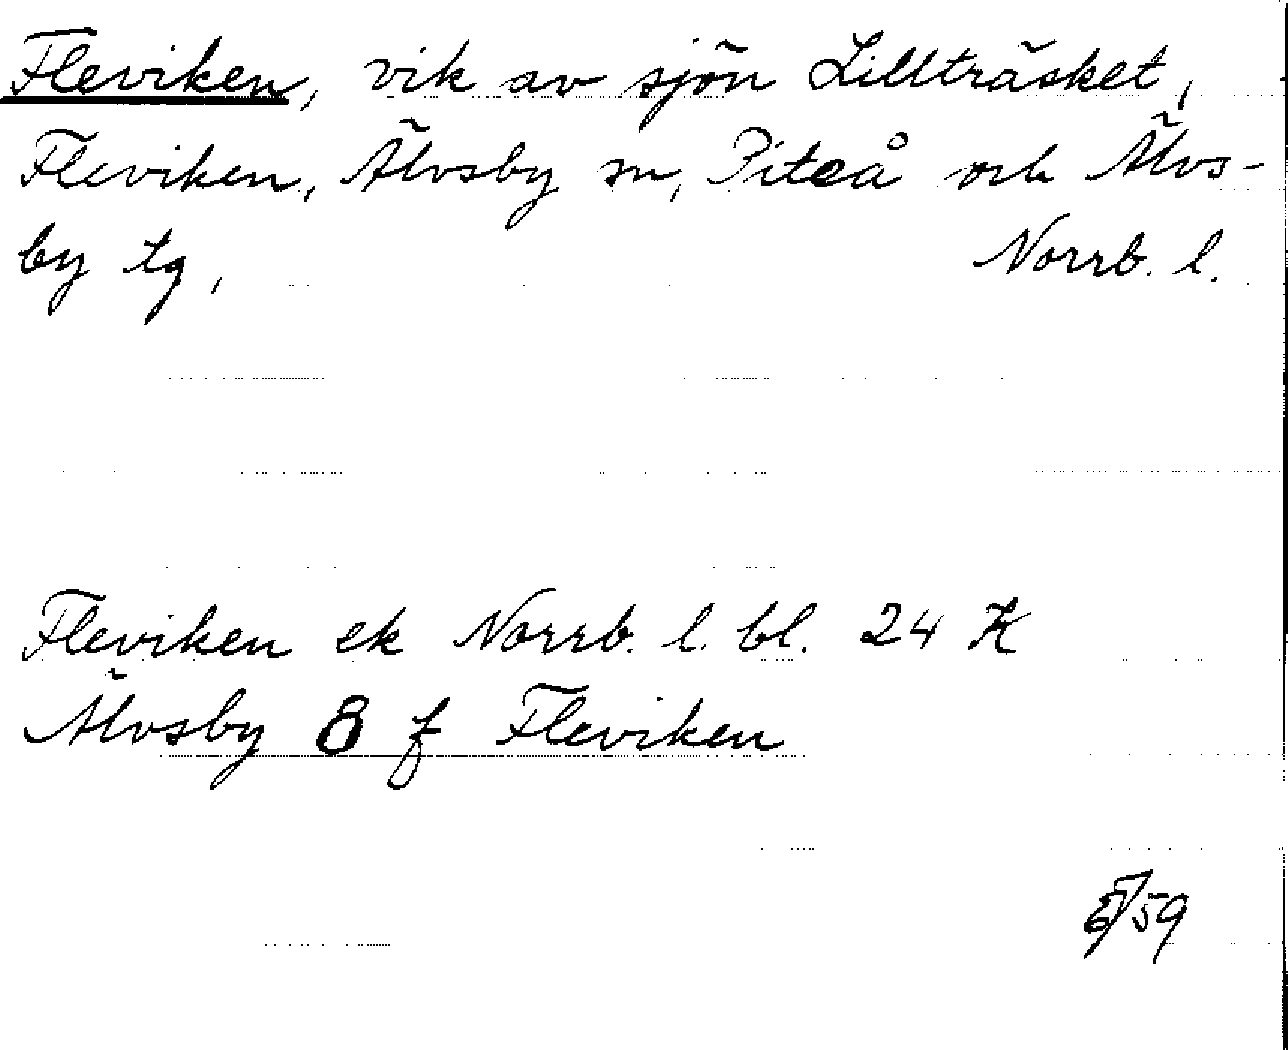 Fleviken, vik av sjön Lillträsket,
Fleviken, Älvsby sn, Piteå och Älvs-
by tg, Norrb. l.
Fleviken ek Norrb. l. bl. 24 K
Älvsby 8 f Fleviken